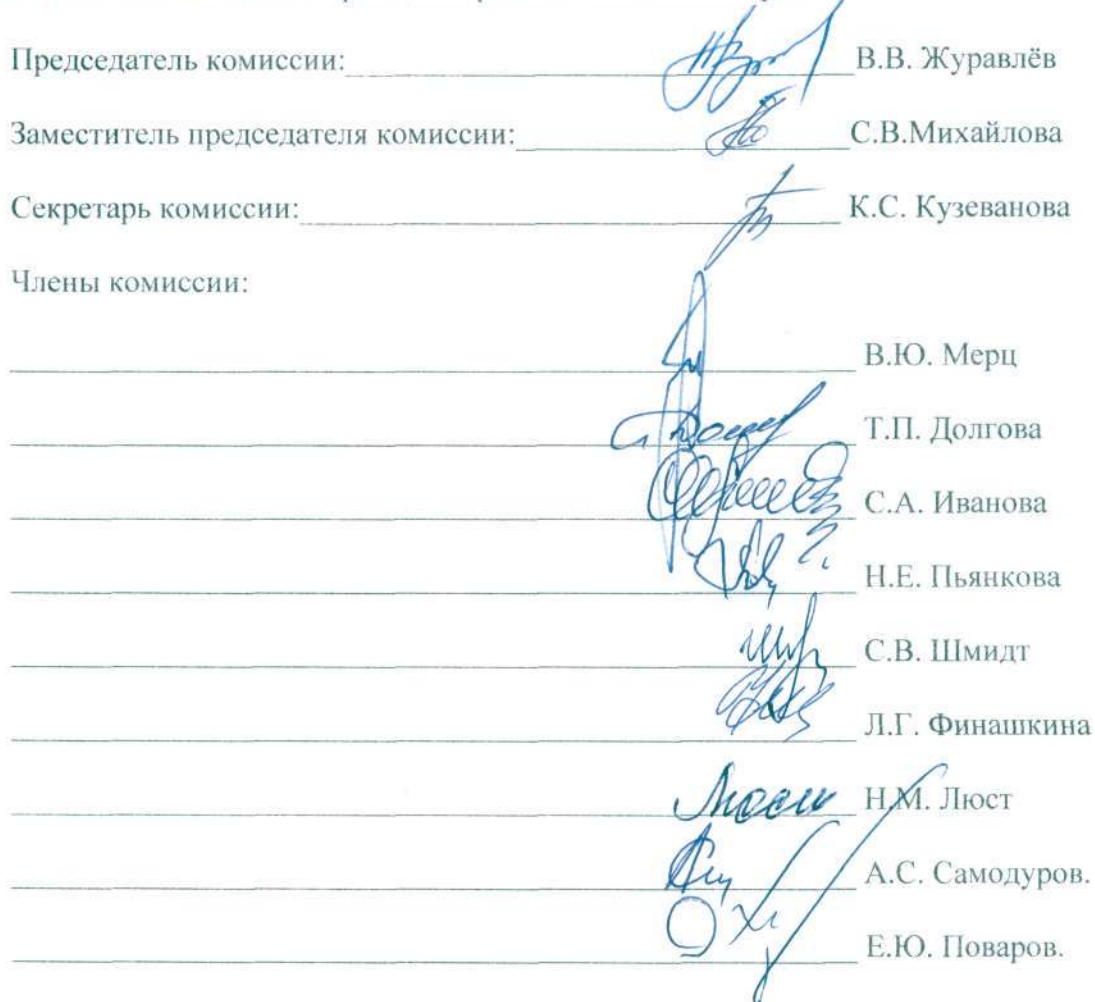 Председатель комиссии: В.В. Журавлёв
Заместитель председателя комиссии: С.В.Михайлова
Секретарь комиссии: К.С. Кузеванова
Члены комиссии:
В.Ю. Мерц
Т.П. Долгова
С.А. Иванова
Н.Е. Пьянкова
С.В. Шмидт
Л.Г. Финашкина
Н.М. Люст
А.С. Самодуров.
Е.Ю. Поваров.